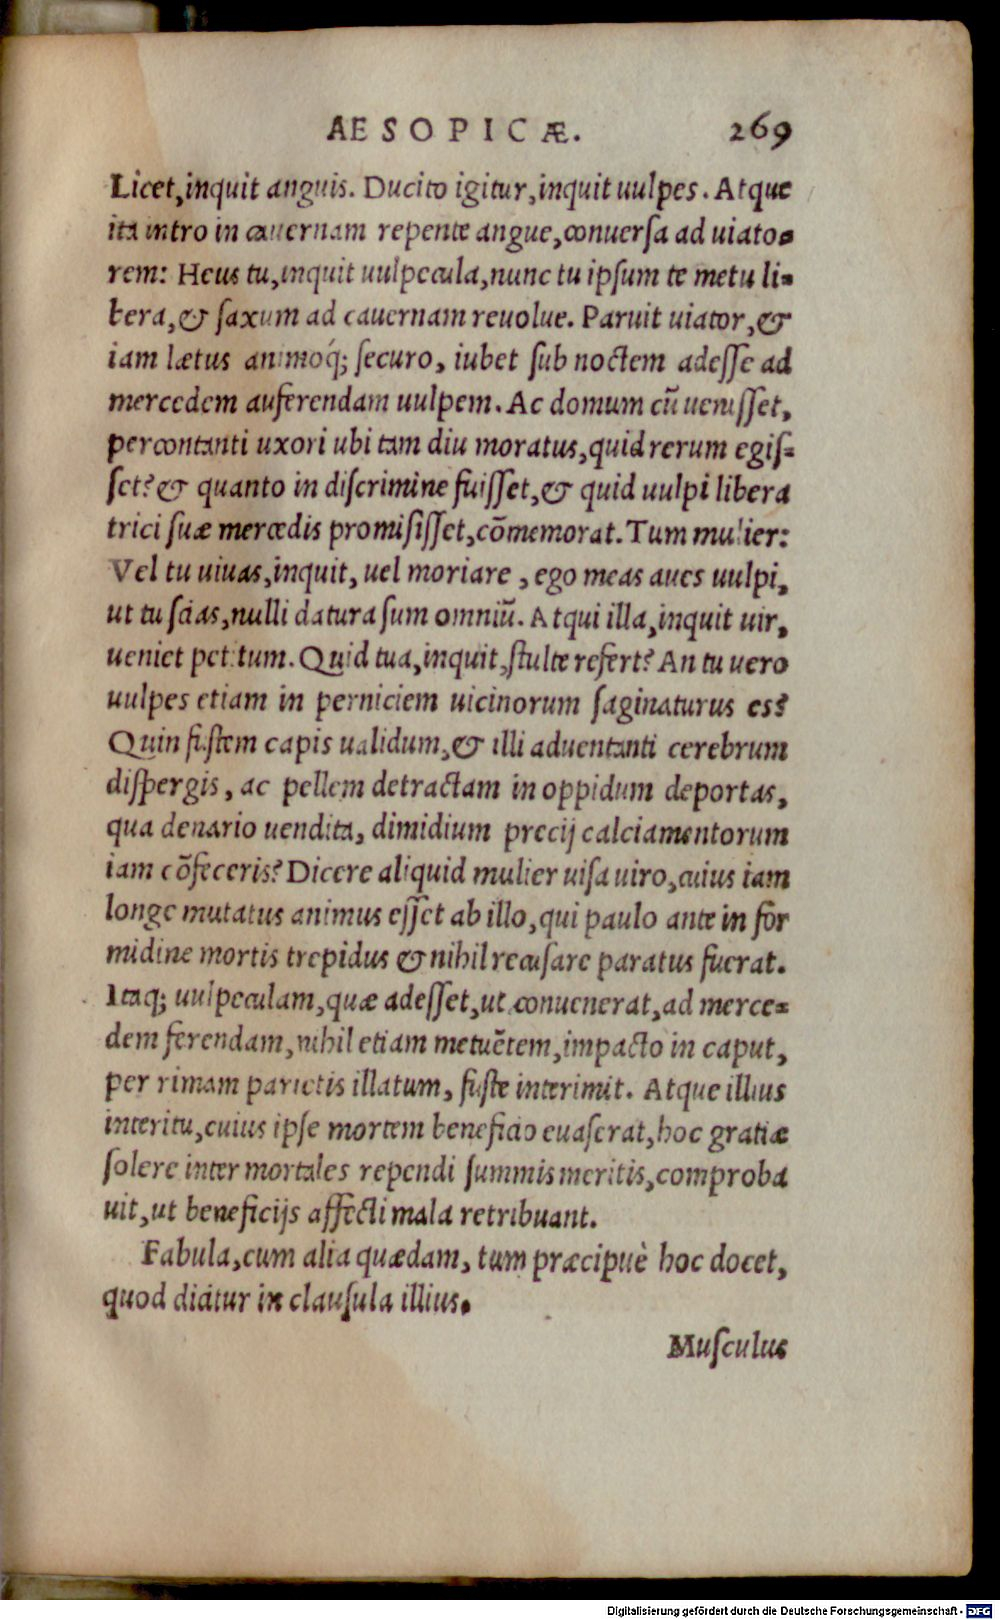 AESOPICÆ. 269
Licet, inquit anguis. Ducito igitur, inquit uulpes. Atque
ita intro in cauernam repente angue, conuersa ad uiato-
rem: Heus tu, inquit uulpecula, nunc tu ipsum te metu li-
bera, & saxum ad cauernam reuolue. Paruit uiator, &
iam lætus animoq́; securo, iubet sub noctem adesse ad
mercedem auferendam uulpem. Ac domum cū uenisset,
percontanti uxori ubi tam diu moratus, quid rerum egis-
set? & quanto in discrimine fuisset, & quid uulpi libera
trici suæ mercedis promisisset, cōmemorat. Tum mulier:
Vel tu uiuas, inquit, uel moriare, ego meas aues uulpi,
ut tu scias, nulli datura sum omniū. Atqui illa, inquit uir,
ueniet petitum. Quid tua, inquit, stulte refert? An tu uero
uulpes etiam in perniciem uicinorum saginaturus es?
Quin fustem capis ualidum, & illi aduentanti cerebrum
dispergis, ac pellem detractam in oppidum deportas,
qua denario uendita, dimidium precij calciamentorum
iam cōfeceris? Dicere aliquid mulier uisa uiro, cuius iam
longe mutatus animus esset ab illo, qui paulo ante in for
midine mortis trepidus & nihil recusare paratus fuerat.
Itaq; uulpeculam, quæ adesset, ut conuenerat, ad merce-
dem ferendam, nihil etiam metuētem, impacto in caput,
per rimam parietis illatum, fuste interimit. Atque illius
interitu, cuius ipse mortem beneficio euaserat, hoc gratiæ
solere inter mortales rependi summis meritis, comproba
uit, ut beneficijs affecti mala retribuant.
Fabula, cum alia quædam, tum præcipuè hoc docet,
quod dicitur in clausula illius.
Musculus
Digitalisierung gefördert durch die Deutsche Forschungsgemeinschaft - DFG